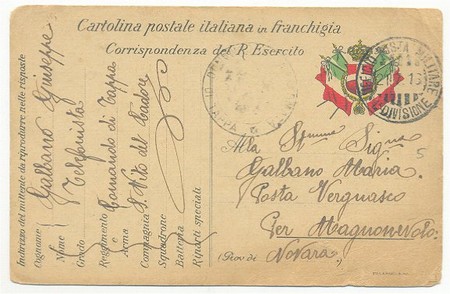 Cartolina postale italiana in franchigia
Corrispondenza del R. Esercito
POSTA MILITARE
DIVISIONE
Indirizzo del mittente da riprodurre nelle risposte
Cognome Galbano Giuseppe
Nome
Grado Telefonista
Reggimento Comando di Tappa
Arma
Compagnia S. Vito del Cadore
Squadrone
Batteria
Riparti speciali
Alla Sig
Galbano Maria
Posta Vergnasco
Per Magnonevolo
(Prov di Novara)